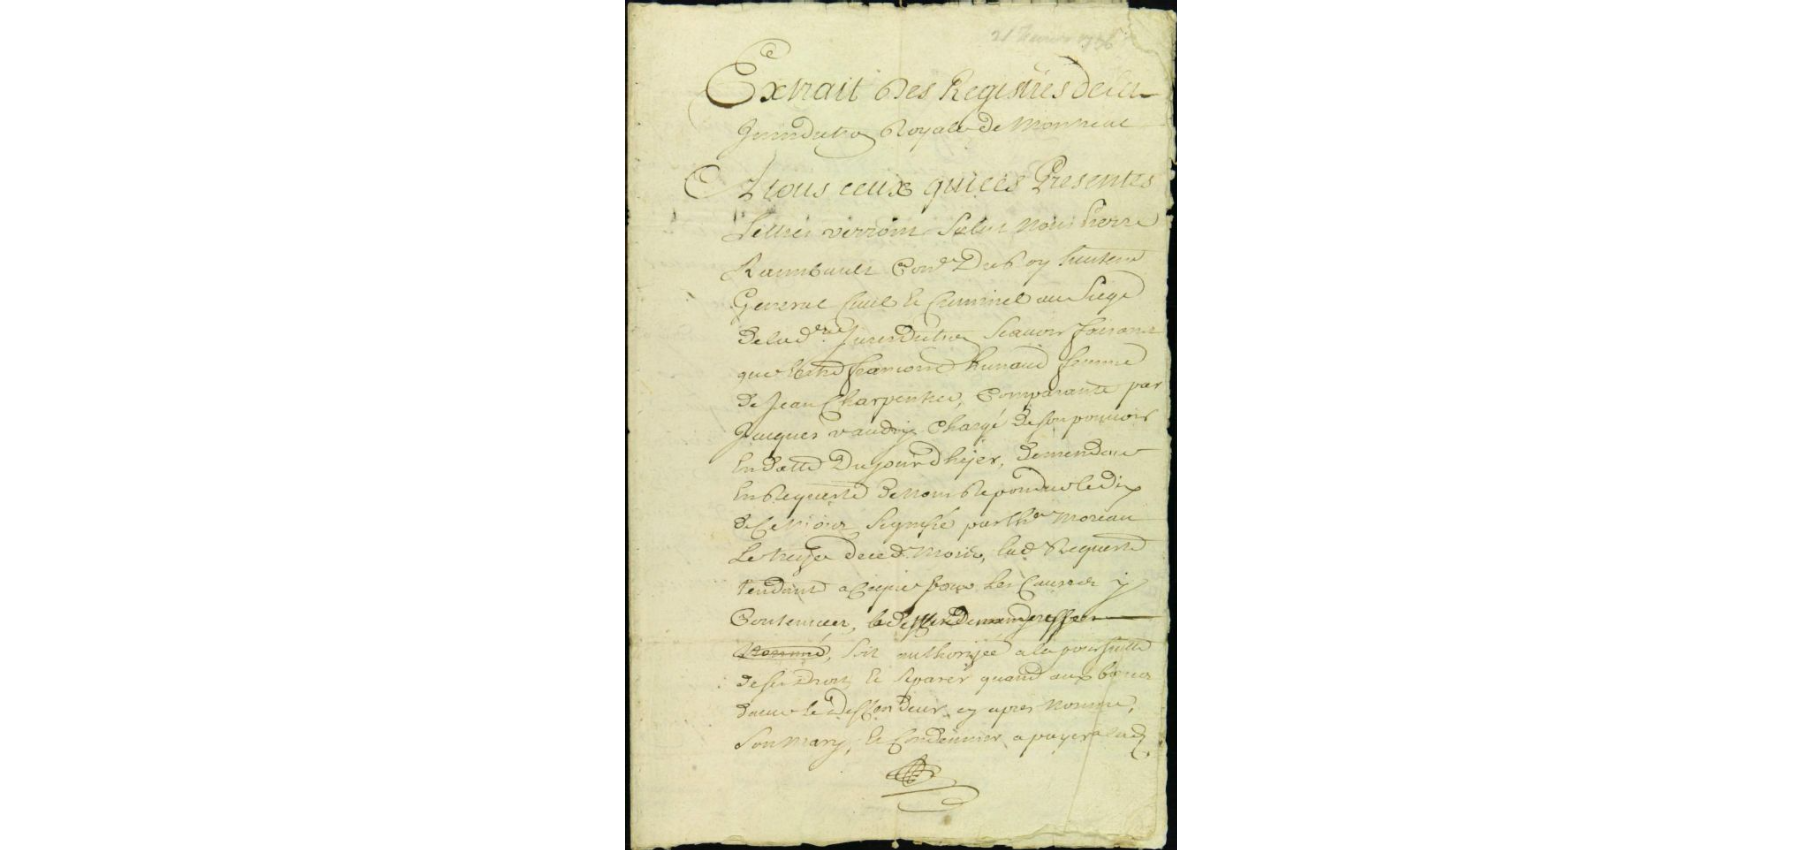 Extrait Des Registres de la
Jurisdiction Royale de Montreal
A tous ceux qui ces Presentes
Lettres verront Salut Nous Pierre
Raimbault Con.er Du Roy Lieutenant
General Civil et Criminel au Siege
De lad. Jurisdiction Scavoir faisons
que femme
de Jean Charpentier, Comparante par
Jacques vaudry Chargé de son pouvoir
En datte Du jour d'hyer, demanderesse
En Requeste de Nous Repondue le dix
de Ce Mois Signifié par Moreau
Le dud. Mois, lad. Requeste
tendante a Ceque pour les Causes y
Contenues, la demanderesse
soit authorisée a la poursuitte
de ses droits et Separée quand aux biens
davec le deffendeur cy apres Nommé,
Son Mary, et Condamner a payer a lad.